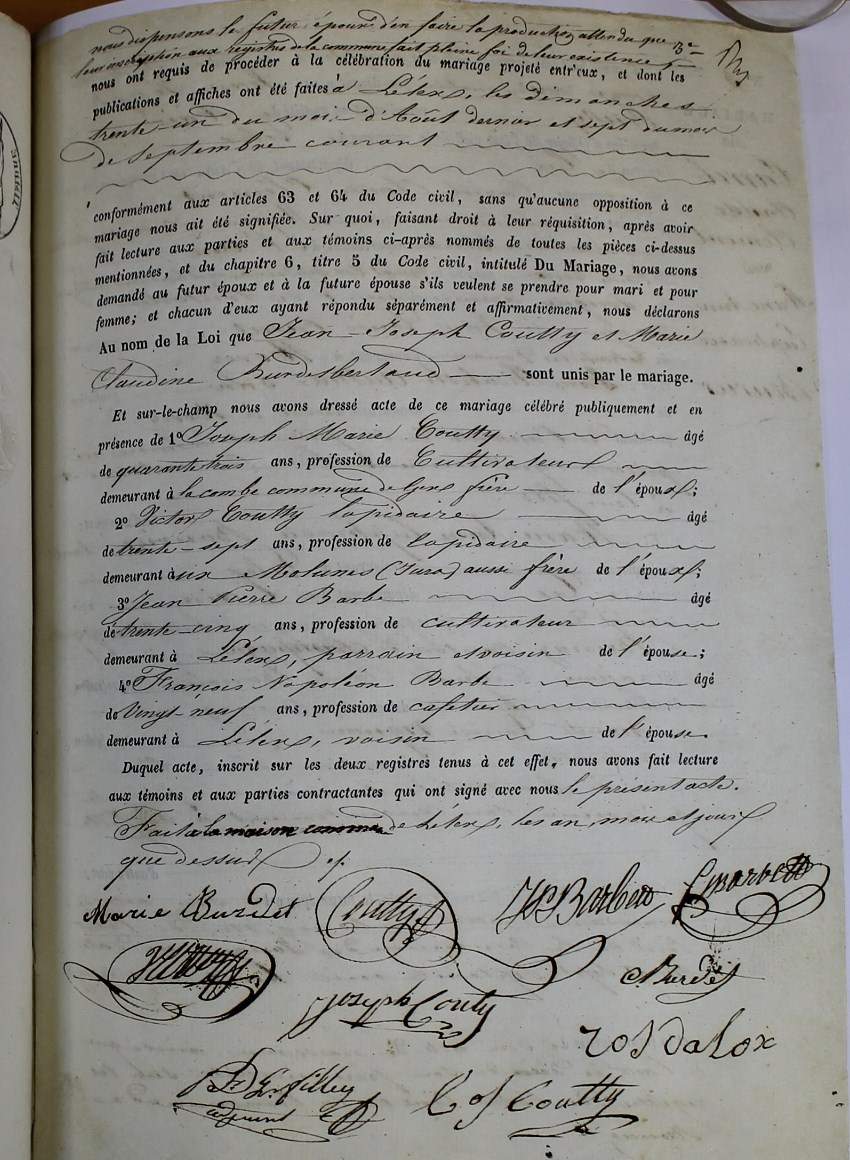 nous dispensons le futur époux d'en faire la production attendu que
leur inscription aux registres de la commune fait pleine foi de leur existence
nous ont requis de procéder à la célébration du mariage projeté entr'eux, et dont les
publications et affiches ont été faites à Lélex, les dimanches
trente-un du mois d'Août dernier et sept du mois
de Septembre courant
conformément aux articles 63 et 64 du Code civil, sans qu'aucune opposition à ce
mariage nous ait été signifiée. Sur quoi, faisant droit à leur réquisition, après avoir
fait lecture aux parties et aux témoins ci-après nommés de toutes les pièces ci-dessus
mentionnées, et du chapitre 6, titre 5 du Code civil, intitulé Du Mariage, nous avons
demandé au futur époux et à la future épouse s'ils veulent se prendre pour mari et pour
femme; et chacun d'eux ayant répondu séparément et affirmativement, nous déclarons
Au nom de la Loi que Jean-Joseph Coutty et Marie
Claudine Burdet sont unis par le mariage.
Et sur-le-champ nous avons dressé acte de ce mariage célébré publiquement et en
présence de 1º Joseph Marie Coutty âgé
de quarante trois ans, profession de Cultivateur
demeurant à la combe commune de frère de l'époux;
2º Victor Coutty lapidaire âgé
de trente-sept ans, profession de lapidaire
demeurant aux Molunes (Jura) aussi frère de l'époux;
3º Jean Pierre Barbe âgé
de trente-cinq ans, profession de cultivateur
demeurant à Lélex, parrain et voisin de l'épouse;
4º François Napoléon Barbe âgé
de Vingt-neuf ans, profession de cafetier
demeurant à Lélex, voisin de l'épouse.
Duquel acte, inscrit sur les deux registres tenus à cet effet, nous avons fait lecture
aux témoins et aux parties contractantes qui ont signé avec nous le présent acte.
Fait à la maison commune de Lélex, les an, mois et jour
que dessus
Marie Burdet Coutty
Burdet
Joseph Couty
Rosdalox
adjoint
Coutty